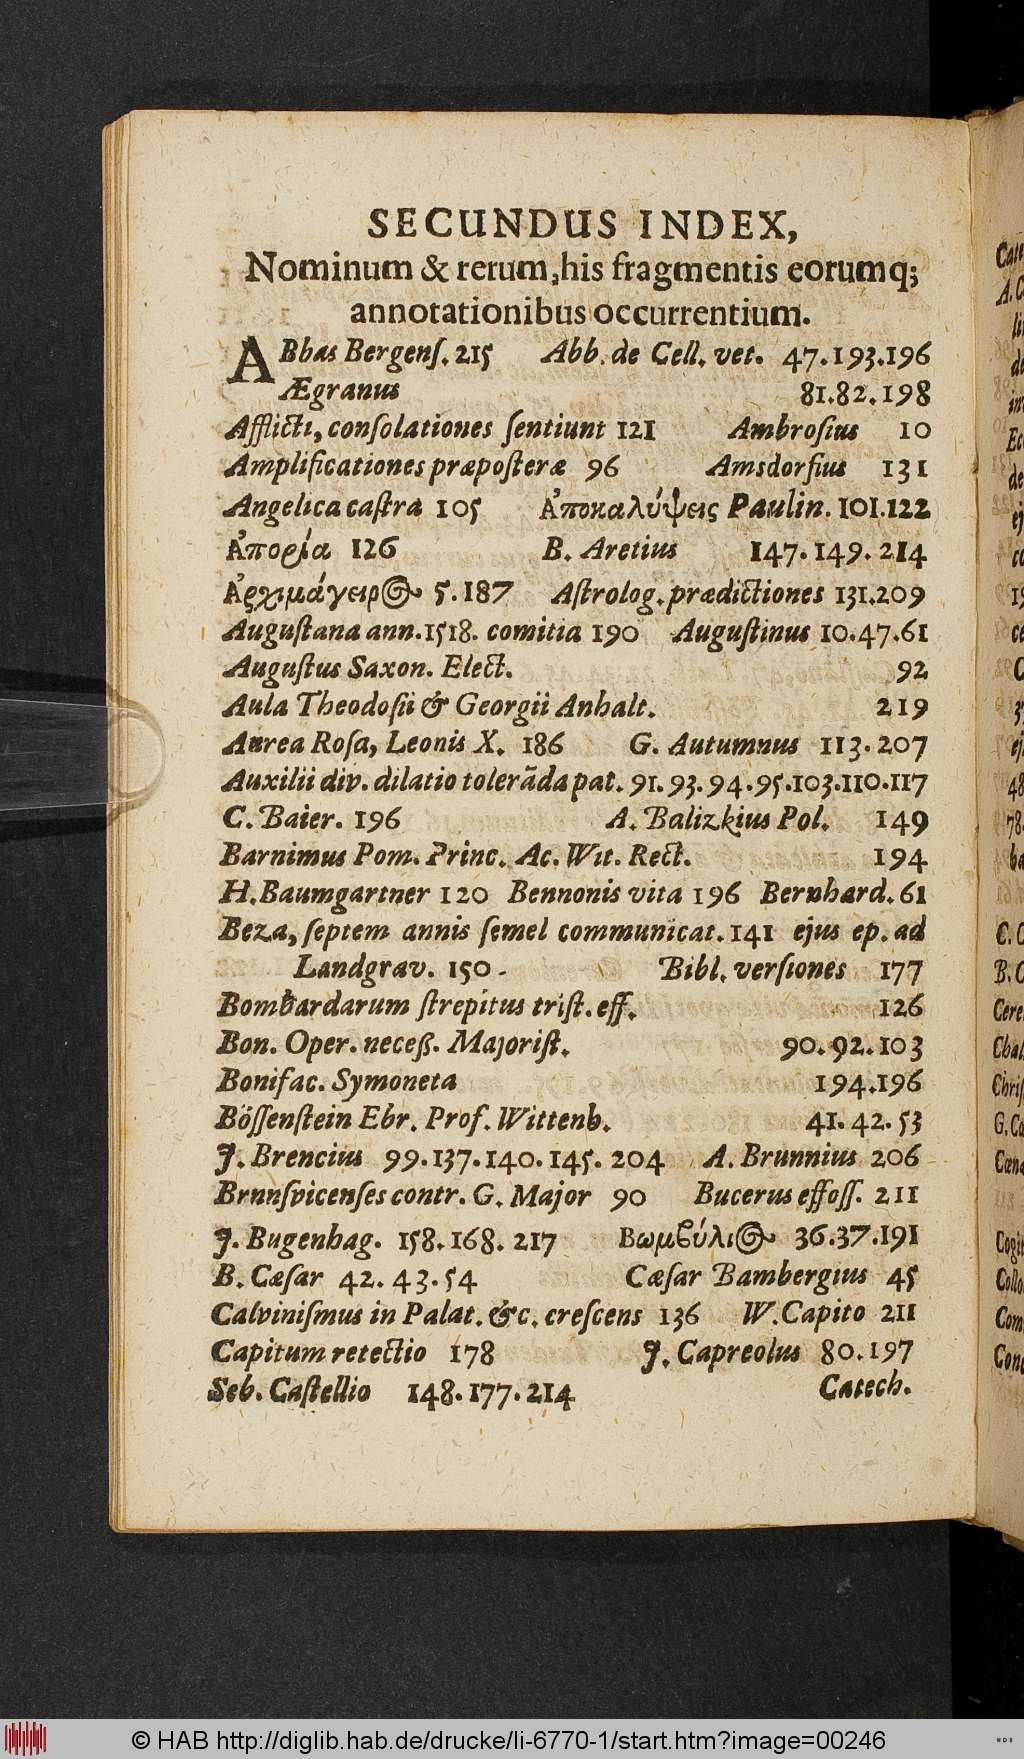 SECUNDUS INDEX,
Nominum & rerum, his fragmentis eorumq;
annotationibus occurrentium.
ABbas Bergenſ. 215 Abb. de Cell. vet. 47.193.196
Ægranus 81.82.198
Afflicti, conſolationes ſentiunt 121 Ambroſius 10
Amplificationes præpoſteræ 96 Amsdorfius 131
Angelica caſtra 105 Ἀποκαλύψεις Paulin. 101.122
Ἀπορία 126 B. Aretius 147.149.214
Ἀρχιμάγειρος 5.187 Aſtrolog. prædictiones 131.209
Auguſtana ann. 1518. comitia 190 Auguſtinus 10.47.61
Auguſtus Saxon. Elect. 92
Aula Theodoſii & Georgii Anhalt. 219
Aurea Roſa, Leonis X. 186 G. Autumnus 113.207
Auxilii div. dilatio tolerãda pat. 91.93.94.95.103.110.117
C. Baier. 196 A. Balizkius Pol. 149
Barnimus Pom. Princ. Ac. Wit. Rect. 194
H. Baumgartner 120 Bennonis vita 196 Bernhard. 61
Beza, ſeptem annis ſemel communicat. 141 ejus ep. ad
Landgrav. 150. Bibl. verſiones 177
Bombardarum ſtrepitus triſt. eff. 126
Bon. Oper. neceß. Majoriſt. 90.92.103
Bonifac. Symoneta 194.196
Böſſenſtein Ebr. Prof. Wittenb. 41.42.53
J. Brencius 99.137.140.145.204 A. Brunnius 206
Brunſvicenſes contr. G. Major 90 Bucerus effoſſ. 211
J. Bugenhag. 158.168.217 Βωμϐύλιος 36.37.191
B. Cæſar 42.43.54 Cæſar Bambergius 45
Calviniſmus in Palat. &c. creſcens 136 W. Capito 211
Capitum retectio 178 J. Capreolus 80.197
Seb. Caſtellio 148.177.214 Catech.
© HAB http://diglib.hab.de/drucke/li-6770-1/start.htm?image=00246